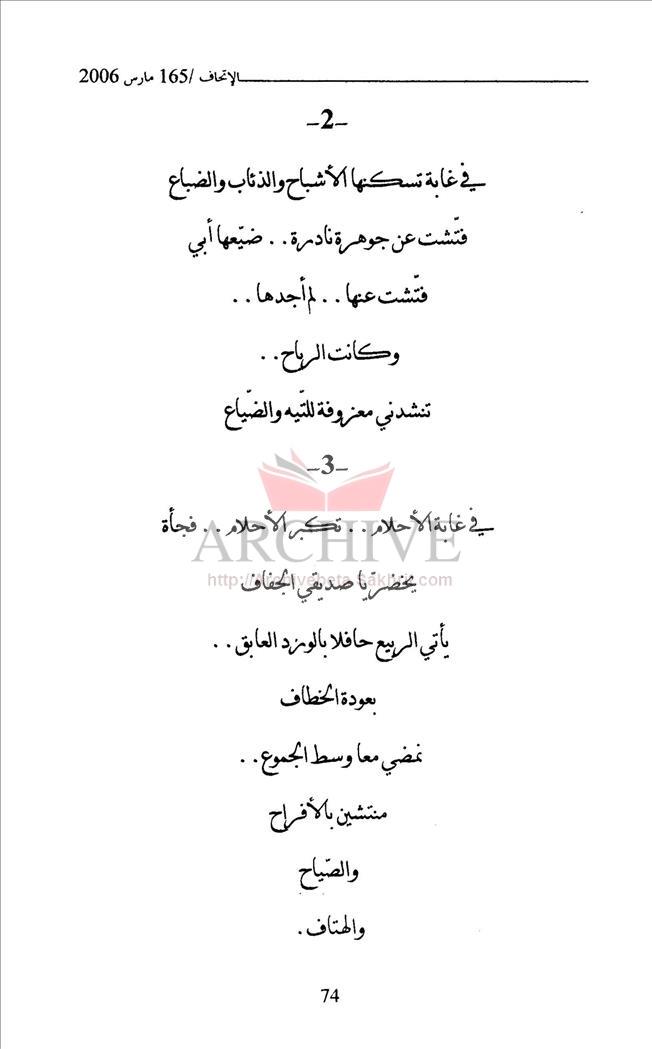 الإتحاف /165 مارس 2006
-2-
في غابة تسكنها الأشباح والذئاب والضباع
فتّشت عن جوهرة نادرة.. ضيّعها أبي
فتّشت عنها.. لم أجدها..
وكانت الرياح..
تنشدني معزوفة للتّيه والضّياع
-3-
في غابة الأحلام.. تكبر الأحلام.. فجأة
ARCHIVE
http://Archivebeta.Sakhrit.com
يخضرّ يا صديقي الجفاف
يأتي الربيع حافلا بالورد العابق..
بعودة الخطاف
نمضي معا وسط الجموع..
منتشين بالأفراح
والصّياح
والهتاف.
74